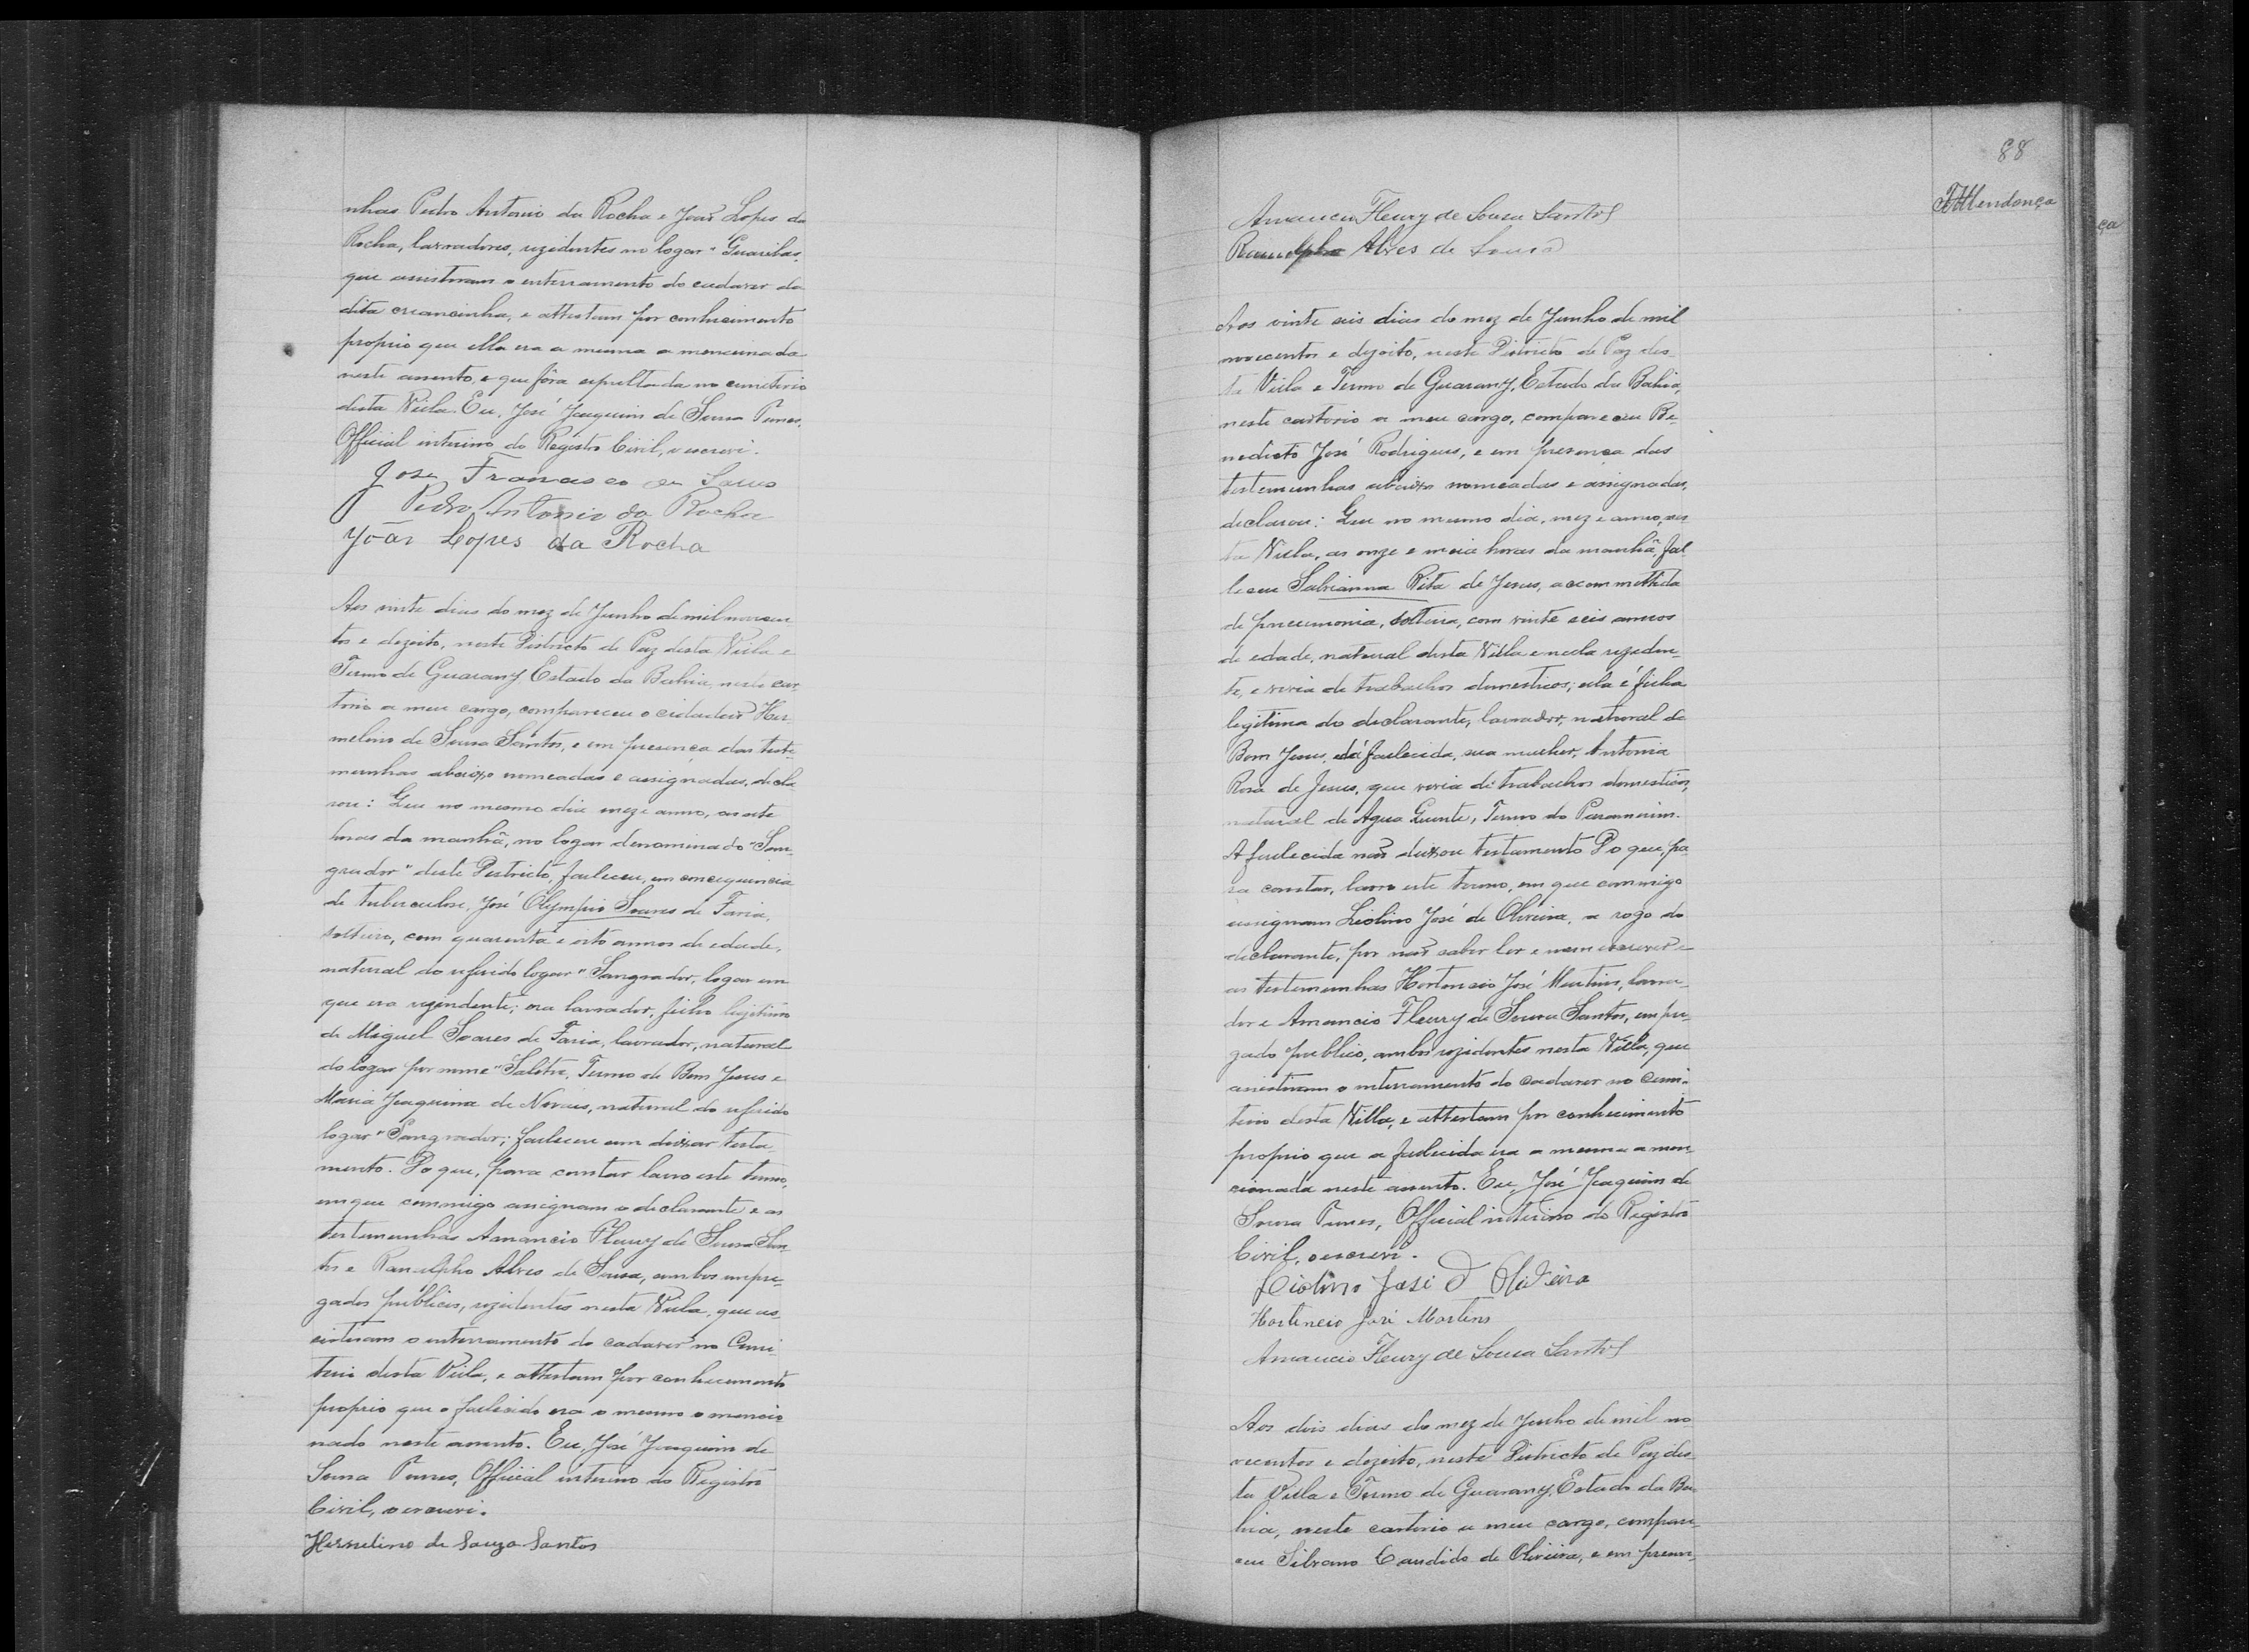 nhas Pedro Antonio da Rocha e João Lopes da
Rocha, lavradores, rezidentes no logar "Guaribas,
que assistiram o enterramento do cadaver da
dita creancinha, e attestam por conhecimento
proprio que ella era a mesma a mencionada
neste assento, e que fôra sepultada no cimiterio
desta Villa. Eu, José Joaquim de Sousa Tunes,
Official interino do Registro Civil, o escrevi.
José Francisco de
Pedro Antonio da Rocha
João Lopes da Rocha
Aos vinte dias do mez de Junho de mil novecen
tos e dezoito, neste Districto de Paz desta Villa e
Termo de Guarany, Estado da Bahia, neste car
torio a meu cargo, compareceu o cidadão Her
melino de Sousa Santos, e em presença das teste
munhas abaixo nomeadas e assignadas, decla
rou: Que no mesmo dia mez e anno, as sete
horas da manhã, no logar denominado "San
grador" deste Districto, falleceu, em consequencia
de tuberculose, José Olympio Soares de Faria,
solteiro, com quarenta e oito annos de edade,
natural do referido logar "Sangrador, logar em
que era rezindente; era lavrador, filho legitimo
de Miguel Soares de Faria, lavrador, natural
do logar por nome "Salitre, Termo de Bom Jesus e
Maria Joaquina de Novais, natural do referido
logar "Sangrador; falleceu sem deixar testa
mento. Do que, para constar lavro este termo,
em que commigo assignam o declarante e as
testemunhas Amancio Fleury de Sousa San
tos e Ranulpho Alves de Sousa, ambos empre-
gados publicos, rezidentes nesta Villa, que as
sistiram o enterramento do cadaver no Cimi-
terio desta Villa, e attestam por conhecimento
proprio que o fallecido era o mesmo o mencio
nado neste assento. Eu, José Joaquim de
Sousa Tunes, Official interino do Registro
Civil, o escrevi.
Hermelino de Souza Santos
88
Mendonça
ça
Amancio Fleury de Sousa Santos
Ranulpho Alves de Sousa
Aos vinte seis dias do mez de Junho de mil
novecentos e dezoito, neste Districto de Paz des
ta Villa e Termo de Guarany, Estado da Bahia,
neste cartorio a meu cargo, compareceu Be-
nedicto José Rodrigues, e em presença das
testemunhas abaixo nomeadas e assignadas,
declarou: Que no mesmo dia, mez e anno, nes
ta Villa, as onze e meia horas da manhã, fal
leceu Sabrianna Rita de Jesus, accommettida
de pneumonia, solteira, com vinte seis annos
de edade, natural desta Villa e nella rezeden
te, e vivia de trabalhos domesticos; ella é filha
legitima do declarante, lavrador, natural de
Bom Jesus, e da fallecida, sua mulher, Antonia
Rosa de Jesus, que vivia de trabalhos domesticos,
natural de Agua Quente, Termo do Paramirim.
A fallecida não deixou testamento Do que, pa
ra constar, lavro este termo, em que commigo
assignam Liolino José de Oliveira, a rogo do
declarante, por não saber ler e nem escrever e
as testemunhas Hortencio José Martins, lavra
dor e Amancio Fleury de Sousa Santos, empre
gado publico, ambos rezidentes nesta Villa, que
assistiram o enterramento do cadaver no Cimi-
terio desta Villa, e attestam por conhecimento
proprio que a fallecida era a mesma a men
cionada neste assento. Eu, José Joaquim de
Sousa Tunes, Official interino do Registro
Civil, o escrevi.
Liolino José d Oliveira
Hortencio José Martins
Amancio Fleury de Sousa Santos
Aos dois dias do mez de Julho de mil no
vecentos e dezoito, neste Districto de Paz des
ta Villa e Termo de Guarany, Estado da Ba
hia, neste cartorio a meu cargo, compare
ceu Silvano Candido de Oliveira, e em presen